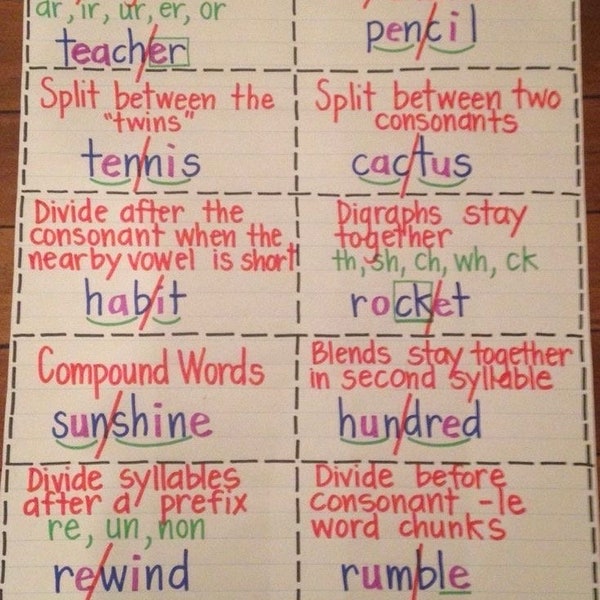 ar, ir, ur, er, or
teach/er
pen/cil
Split between the
"twins"
ten/nis
Split between two
consonants
cac/tus
Divide after the
consonant when the
nearby vowel is short
hab/it
Digraphs stay
together
th, sh, ch, wh, ck
rock/et
Compound Words
sun/shine
Blends stay together
in second syllable
hun/dred
Divide syllables
after a prefix
re, un, non
re/wind
Divide before
consonant -le
word chunks
rum/ble